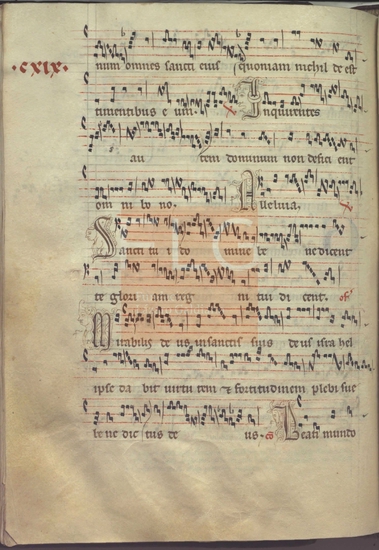 ·cxix·
num omnes sancti eius quoniam nichil de est
timentibus e um. Inquirentes
au tem dominum non defici ent
om ni bo no. Alleluia.
Sancti tu i do mine be ne dicent
te glori am reg ni tui di cent. of
Mirabilis de us in sanctis suis de us isra hel
ipse da bit virtu tem & fortitudinem plebi sue
be ne dic tus de us. co Beati mundo